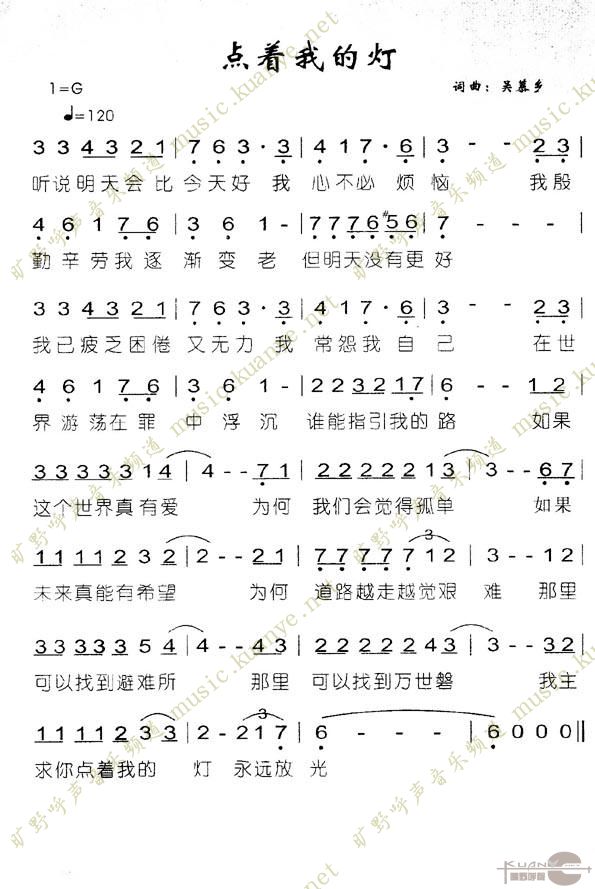 点着我的灯
1=G
词曲：吴慕乡
♩=120
3 3 4 3 2 1 | 7 6 3 · 3 | 4 1 7 · 6 | 2 - - 2 3 |
听说明天会比今天好 我 心不必 烦恼 我殷
4 6 1 7 6 | 3 6 1 - | 7 7 7 6 #5 6 | 7 - - - |
勤辛劳我逐 渐变老 但明天没有更好
3 3 4 3 2 1 | 7 6 3 · 3 | 4 1 7 · 6 | 2 - - 2 3 |
我已疲乏困倦 又无力 我 常怨我 自己 在世
4 6 1 7 6 | 3 6 1 - | 2 2 2 3 2 1 7 | 6 - - 1 2 |
界游荡在罪 中浮沉 谁能指引我的路 如果
3 3 3 3 3 3 1 4 | 4 - - 7 1 | 2 2 2 2 2 2 1 3 | 3 - - 6 7 |
这个世界真有爱 为何 我们会觉得孤单 如果
1 1 1 1 2 3 2 | 2 - - 2 1 | 7 7 7 7 7 7 1 2 | 3 - - 1 2 |
未来真能有希望 为何 道路越走越觉艰 难 那里
3 3 3 3 3 5 4 | 4 - - 4 3 | 2 2 2 2 2 4 3 | 3 - - 3 2 |
可以找到避难所 那里 可以找到万世磐 我主
1 1 1 1 2 3 3 | 2 - 2 1 7 | 6 - - - | 6 0 0 0 ||
求你点着我的 灯 永远放 光
旷野呼声音乐频道 music.kuanye.net
KUANYE
旷野呼声